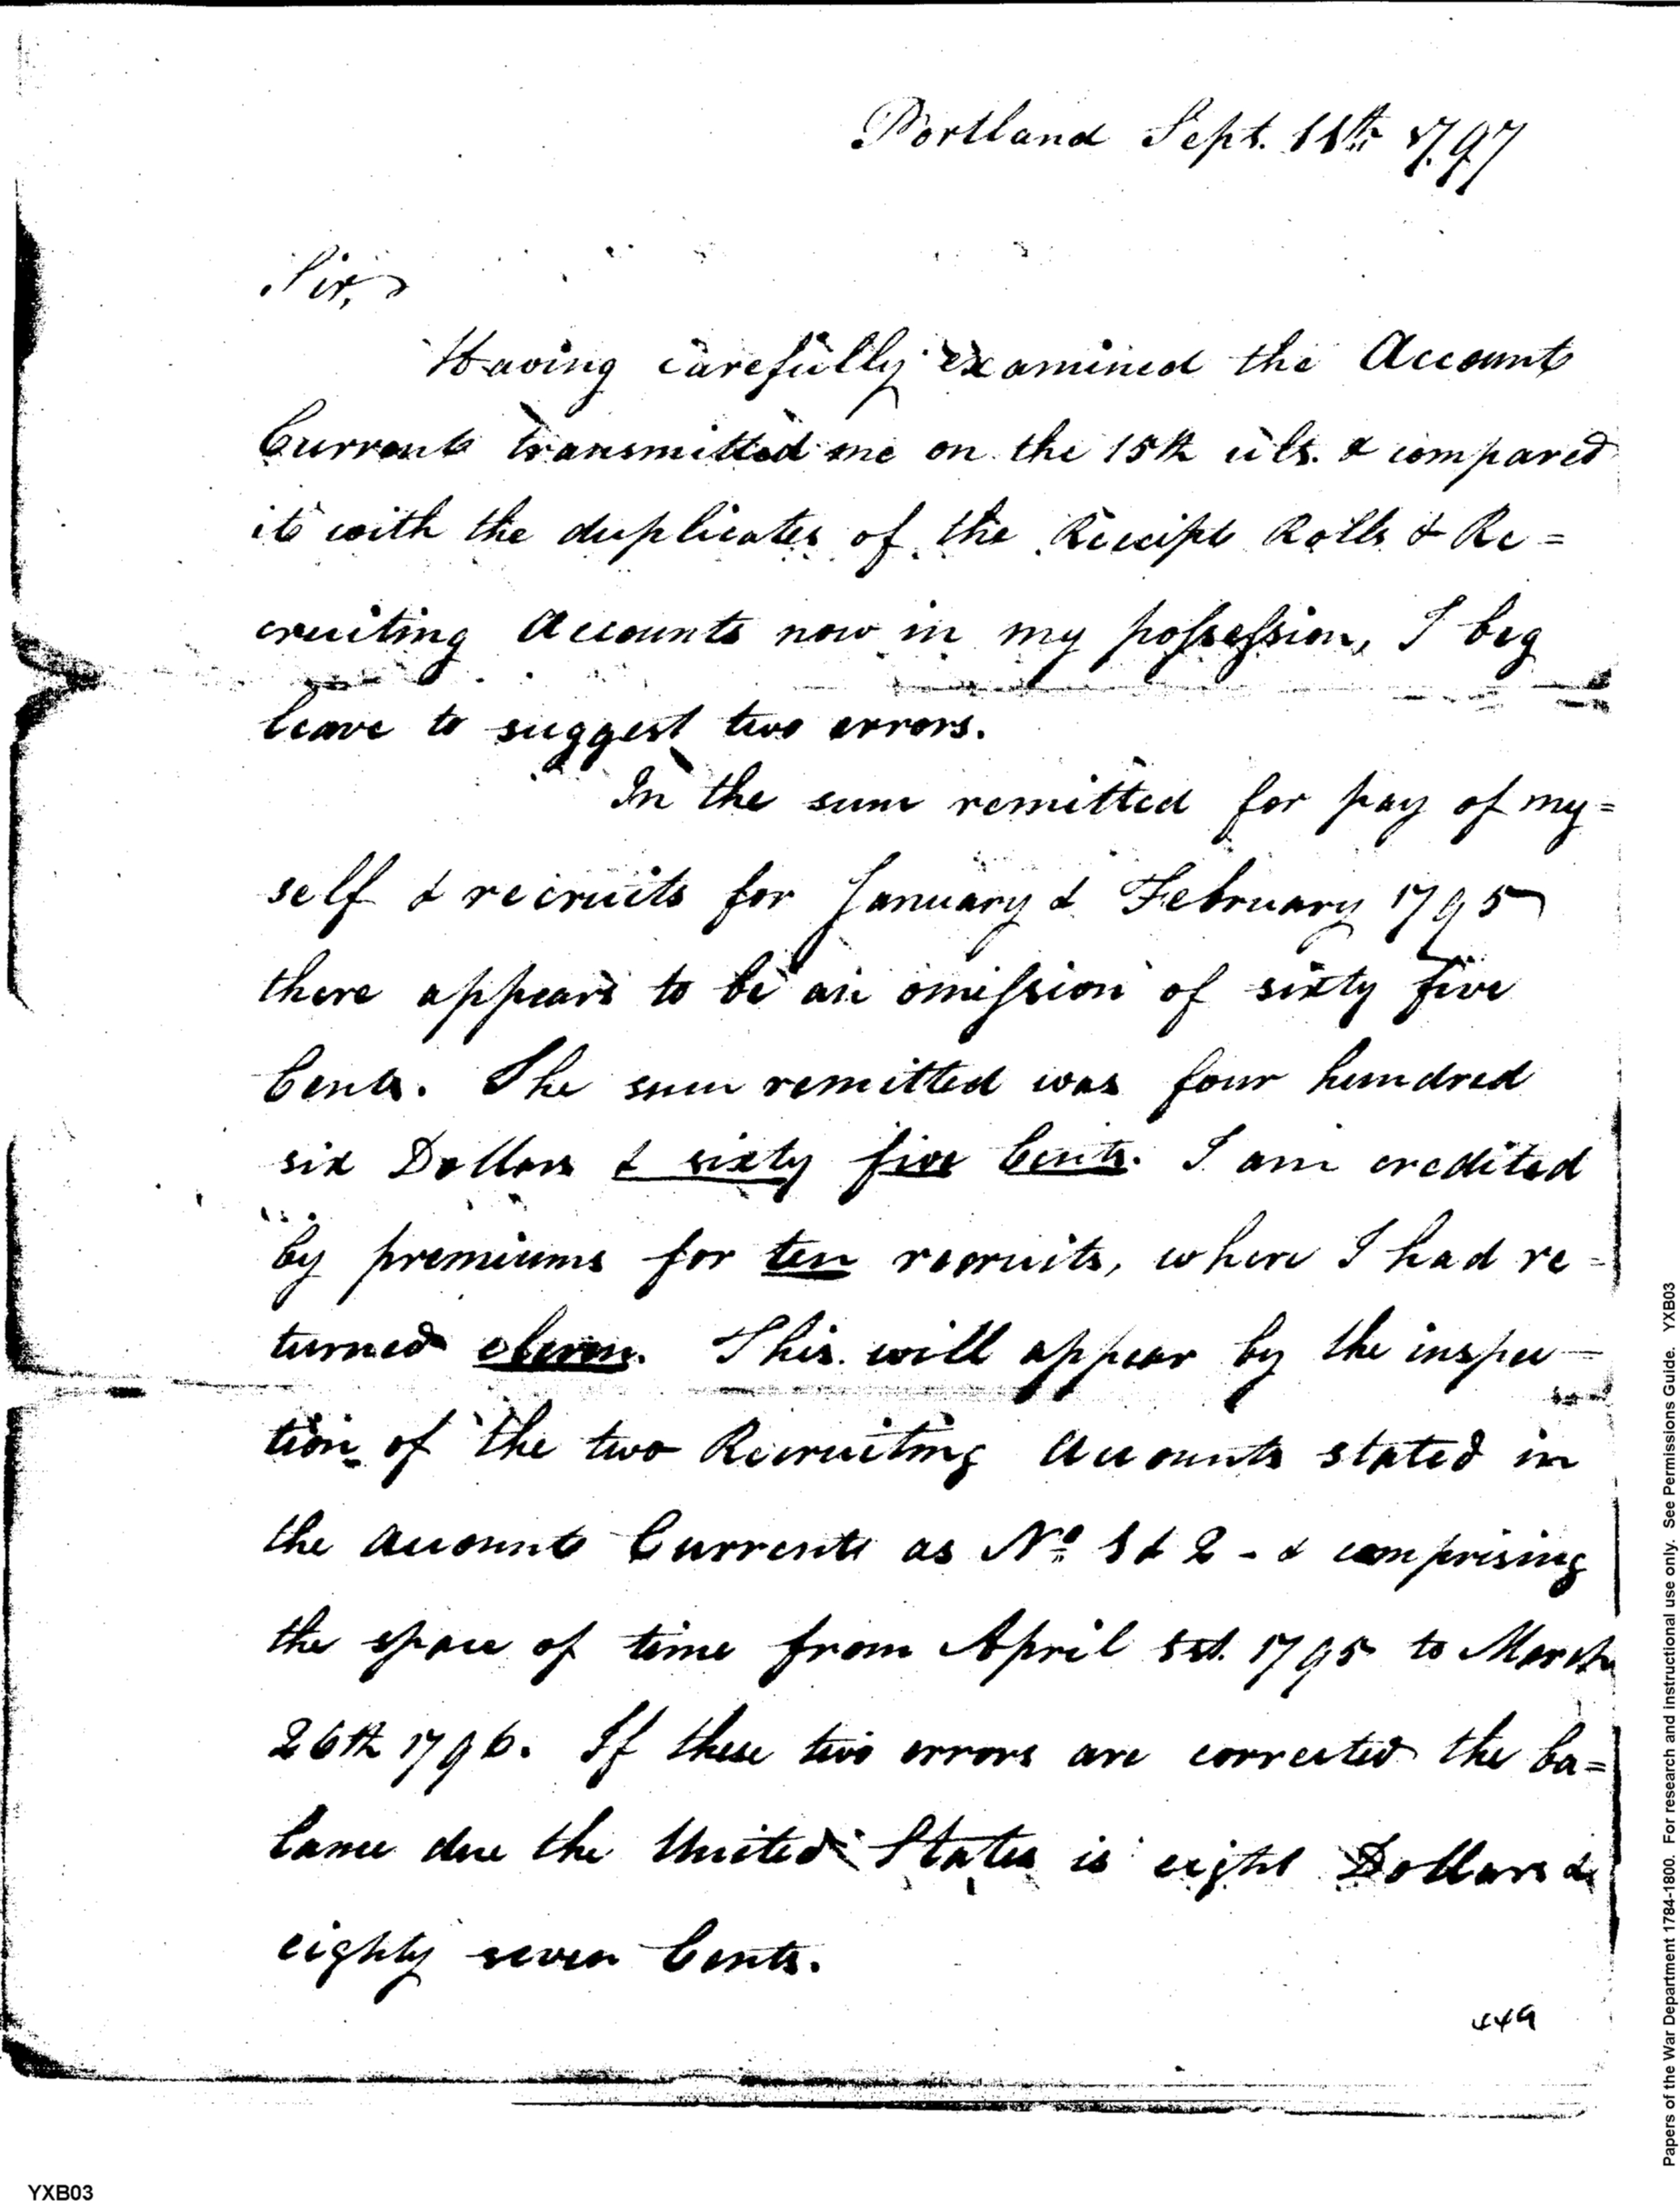 Portland Sept. 11th 1797
Sir,
Having carefully examined the Account
Current transmitted me on the 15th ult. & compared
it with the duplicates of the Receipt Rolls & Re=
cruiting Accounts now in my possession, I beg
leave to suggest two errors.
In the sum remitted for pay of my=
self & recruits for January & February 1795
there appears to be an omission of sixty five
Cents. The sum remitted was four hundred
six Dollars & sixty five Cents. I am credited
by premiums for ten recruits, where I had re=
turned eleven. This will appear by the inspec-
tion of the two Recruiting Accounts stated in
the Account Current as No. 1 & 2 - & comprising
the space of time from April 1st. 1795 to March
26th 1796. If these two errors are corrected the ba=
lance due the United States is eight Dollars &
eighty seven Cents.
449
YXB03
Papers of the War Department 1784-1800. For research and instructional use only. See Permissions Guide. YXB03